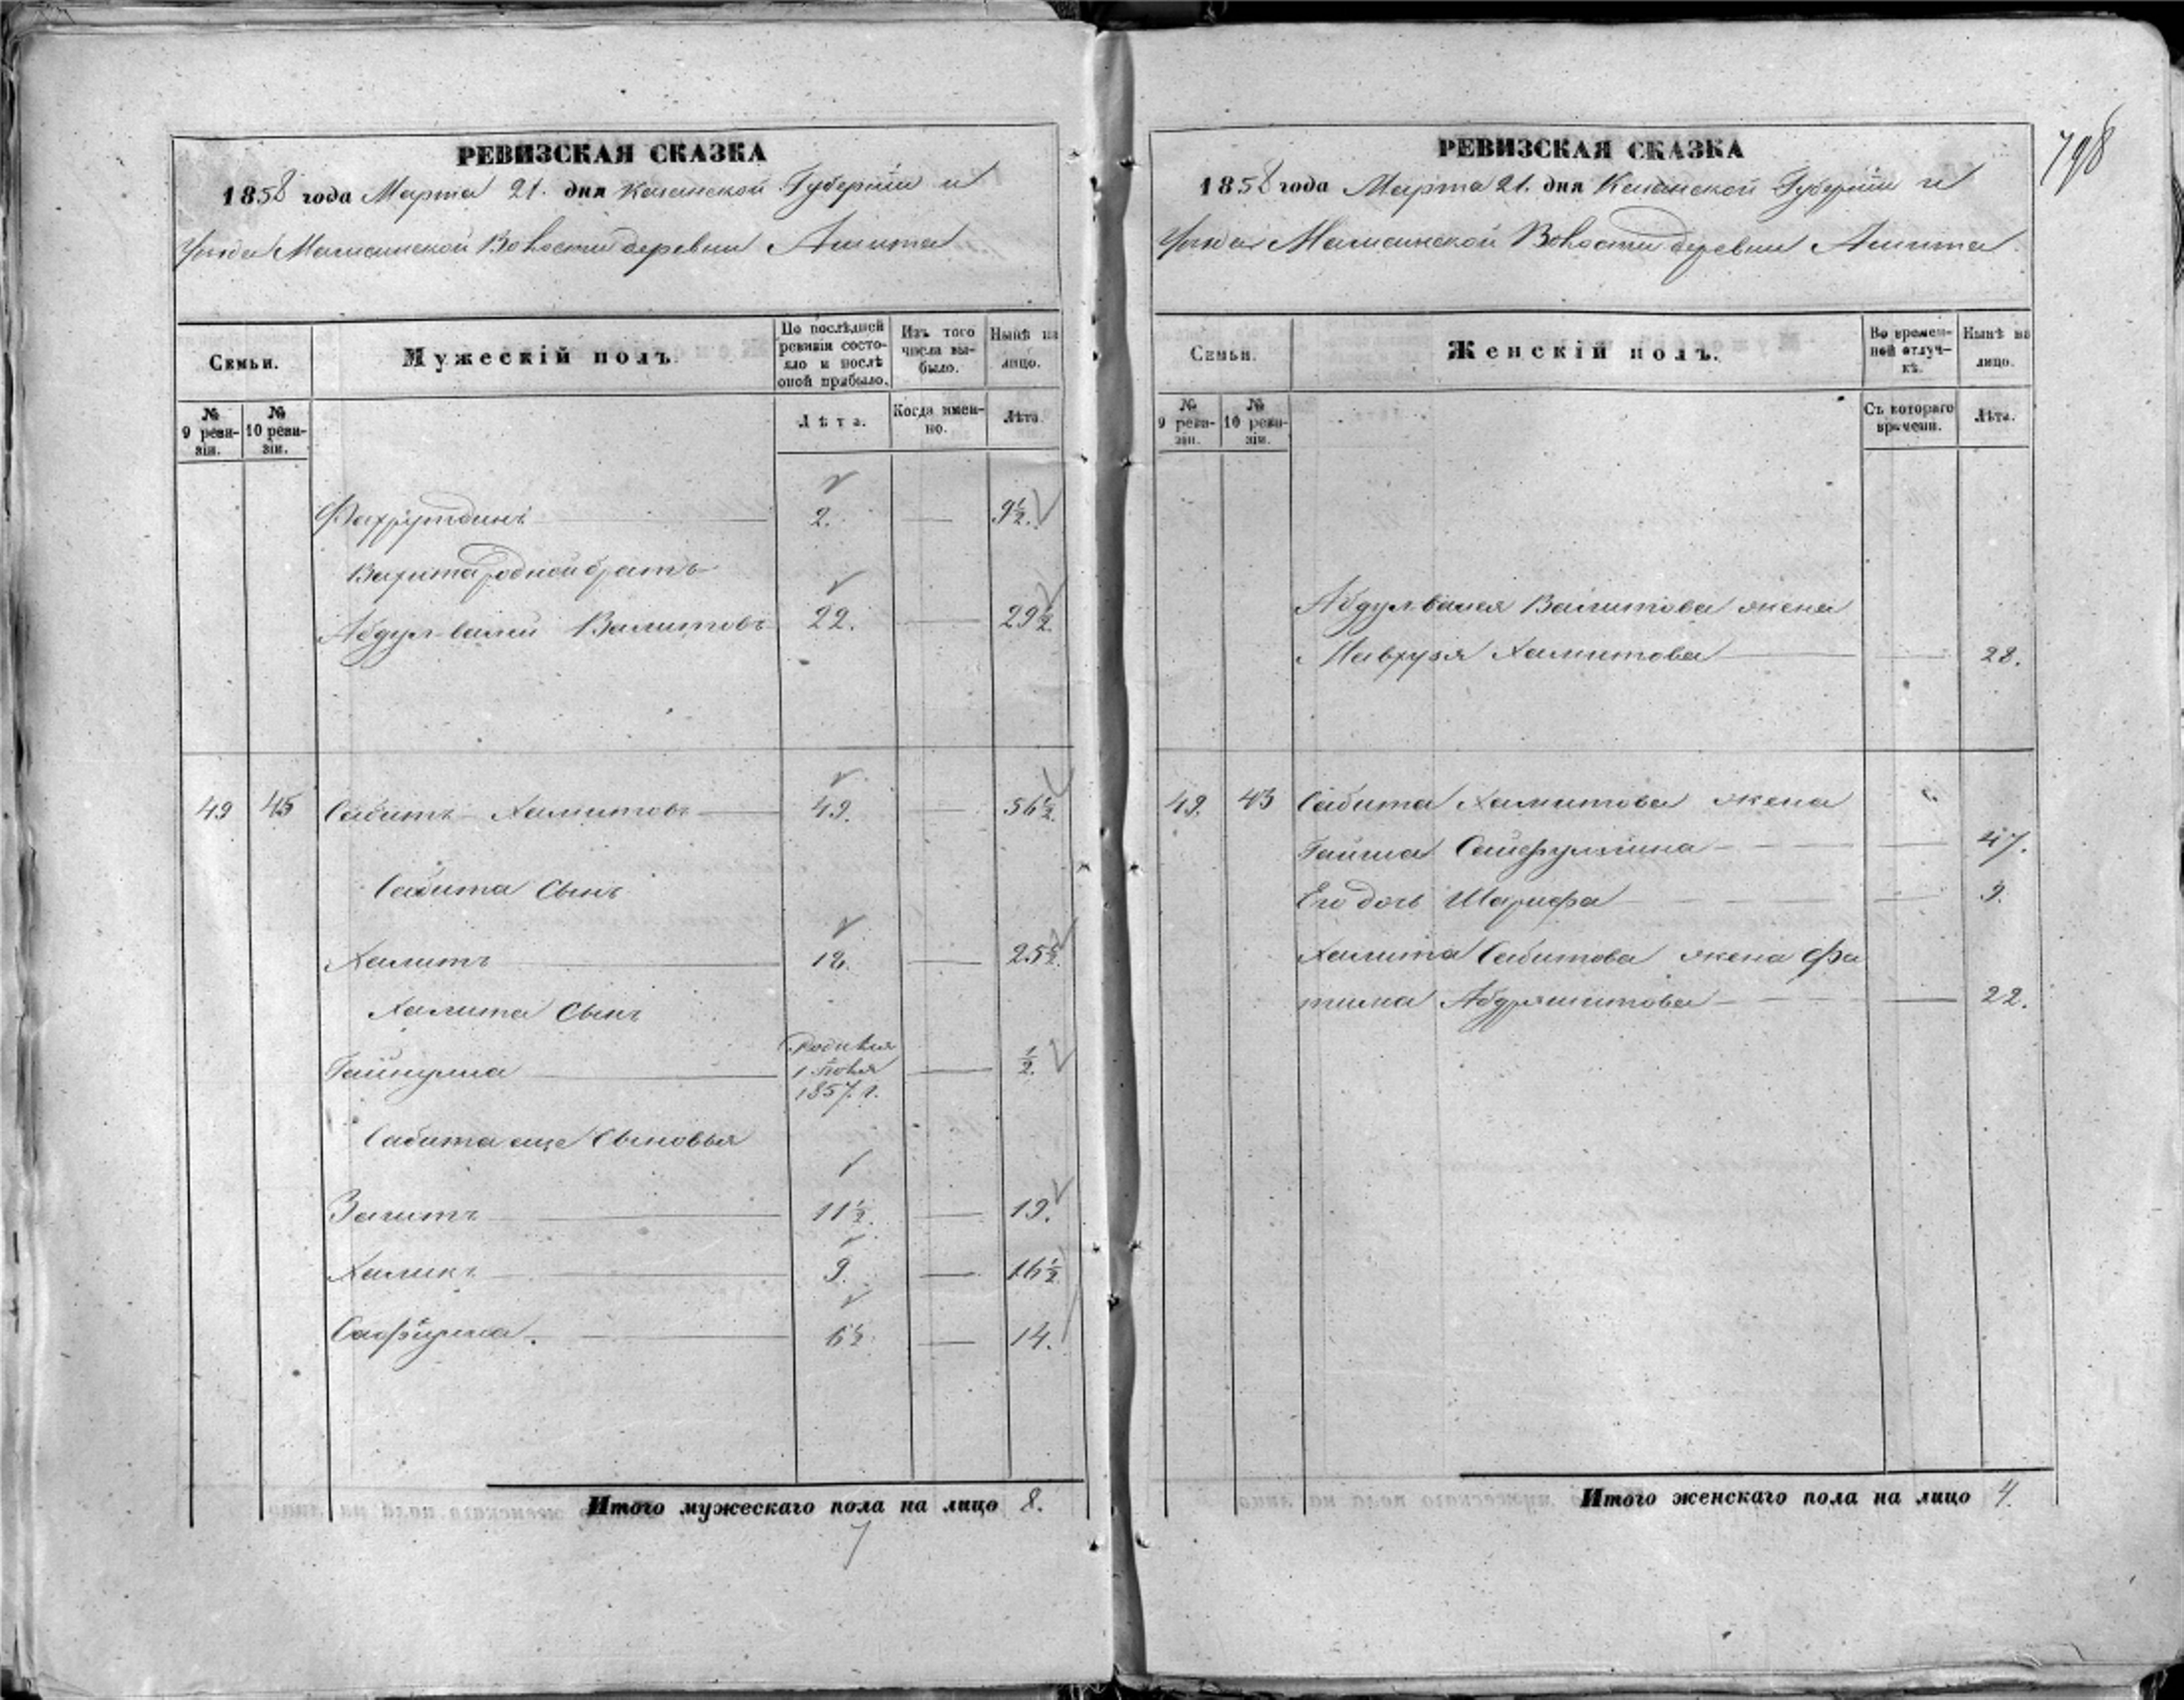 РЕВИЗСКАЯ СКАЗКА
1858 года Марта 21. дня Казанской Губернiи и
Уезда Мамсинской Волости деревни Ашита
Семьи.
Мужескiй полъ.
По послѣдней ревизiи состояло и послѣ оной прибыло.
Изъ того числа выбыло.
Нынѣ на лицо.
№ 9 ревизiи.
№ 10 ревизiи.
Лѣта.
Когда именно.
Лѣта.
Фахрутдинъ 2. — 9½.
Вахита родной братъ
Абдулвалей Валитовъ 22. — 29½.
49 45 Сабитъ Халитовъ 49. — 56½.
Сабита Сынъ
Халитъ 18. — 25½.
Халита Сынъ
Гайнулла Родился 1 Iюля 1857. г. — ½.
Сабита еще Сыновья
Загитъ 11½. — 19.
Халикъ 9. — 16½.
Сафiулла. 6½. — 14.
Итого мужескаго пола на лицо 8.
7
798
РЕВИЗСКАЯ СКАЗКА
1858 года Марта 21. дня Казанской Губернiи и
Уезда Мамсинской Волости деревни Ашита
Семьи.
Женскiй полъ.
Во временной отлучкѣ.
Нынѣ на лицо.
№ 9 ревизiи.
№ 10 ревизiи.
Съ котораго времени.
Лѣта.
Абдулвалея Валитова жена
Мавхузя Халитова — 28.
49. 45 Сабита Халитова жена
Гайша Сайфуллина — 47.
Его дочь Шарифа — 9.
Халита Сабитова жена Фа
тима Абдряшитова — 22.
Итого женскаго пола на лицо 4.